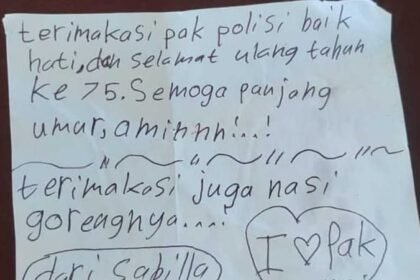 terimakasi pak polisi baik
hati,dan selamat ulang tahun
ke 75. Semoga panjang
umur, aminnh!..!
terimakasi juga nasi
gorengnya....!
I ♡ Pak
dari Sabilla